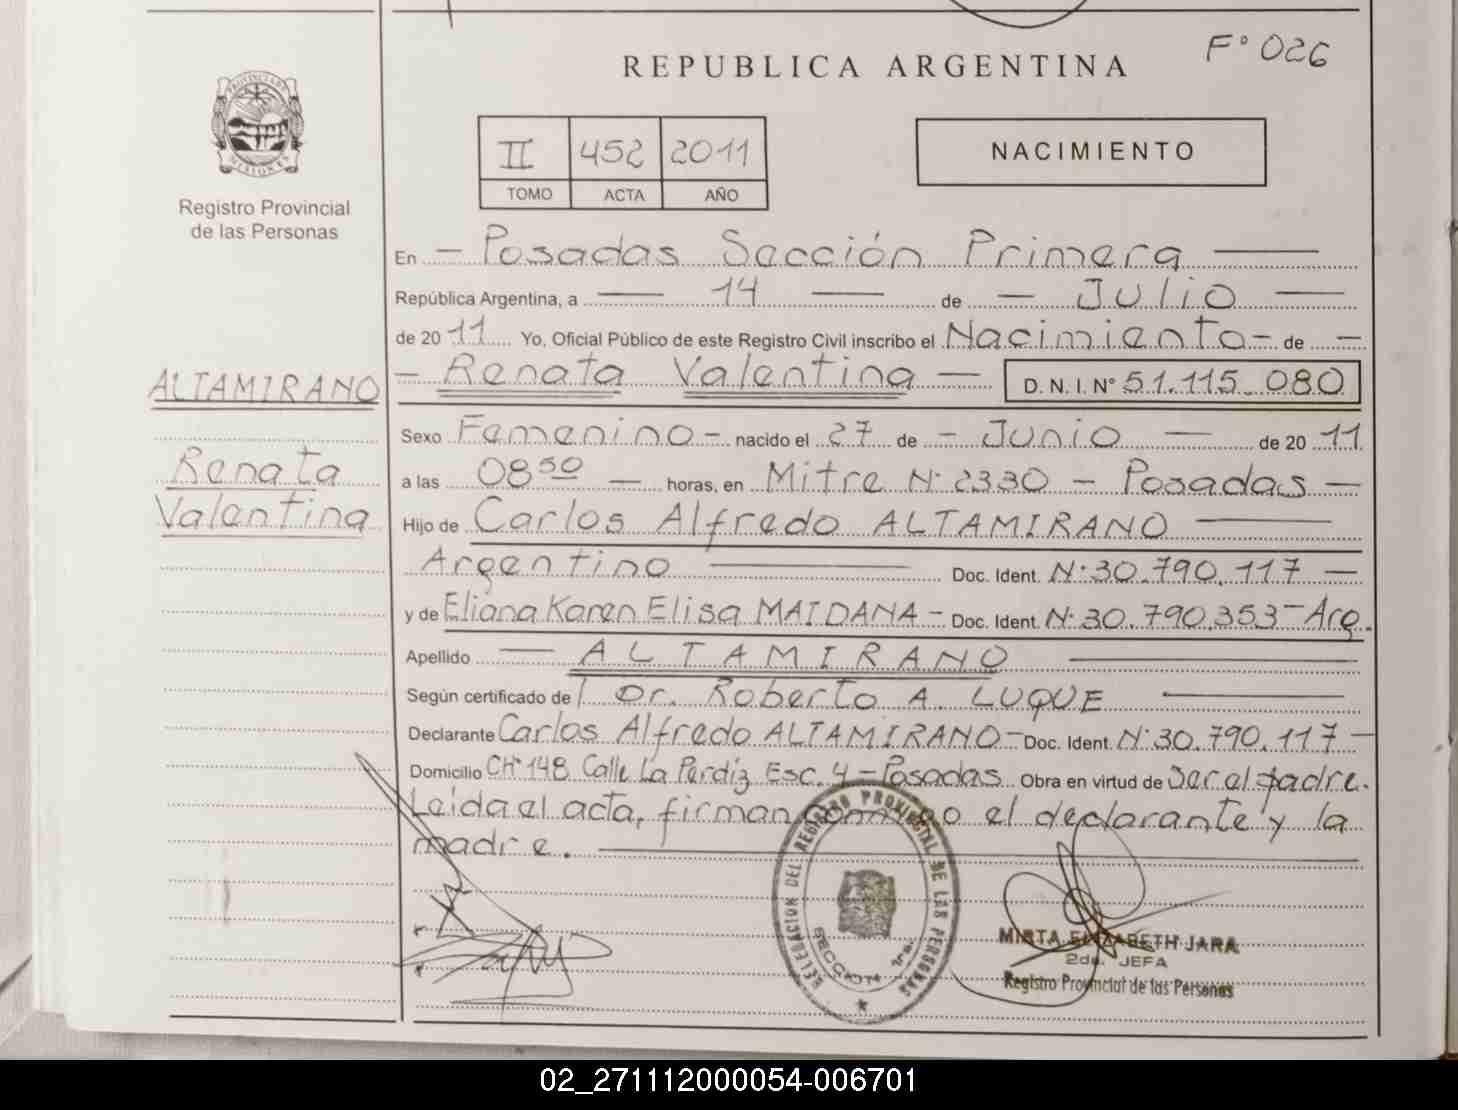 F° 026
REPUBLICA ARGENTINA
PROVINCIA DE
MISIONES
II 452 2011
TOMO ACTA AÑO
NACIMIENTO
Registro Provincial
de las Personas
En - Posadas Sección Primera
República Argentina, a 14 de - JULIO
de 2011 Yo, Oficial Público de este Registro Civil inscribo el Nacimiento - de -
- Renata Valentina - D. N. I. N° 51.115.080
ALTAMIRANO
Renata
Valentina
Sexo Femenino - nacido el 27 de - Junio - de 2011
a las 08 50 - horas, en Mitre N° 2330 - Posadas -
Hijo de Carlos Alfredo ALTAMIRANO
Argentino Doc. Ident. N° 30.790.117 -
y de Eliana Karen Elisa MAIDANA - Doc. Ident. N° 30.790.353 - Arg.
Apellido - ALTAMIRANO
Según certificado de Dr. Roberto A. LUQUE
Declarante Carlos Alfredo ALTAMIRANO - Doc. Ident. N° 30.790.117 -
Domicilio CH° 148 Calle La Perdiz Esc. 4 - Posadas Obra en virtud de ser el padre.
Leída el acta, firman conmigo el declarante y la
madre.
DELEGACION DEL REGISTRO PROVINCIAL DE LAS PERSONAS
SECCION 1ra
MIRTA ELIZABETH JARA
2da. JEFA
Registro Provincial de las Personas
02_271112000054-006701